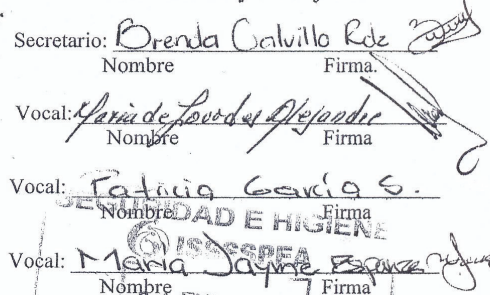 Secretario: Brenda Calvillo Rdz
Nombre Firma.
Vocal: Maria de Lourdes Alejandre
Nombre Firma
Vocal: Patricia García S.
Nombre Firma
SEGURIDAD E HIGIENE
ISSSSPEA
Vocal: Maria Jayme Esparza
Nombre Firma